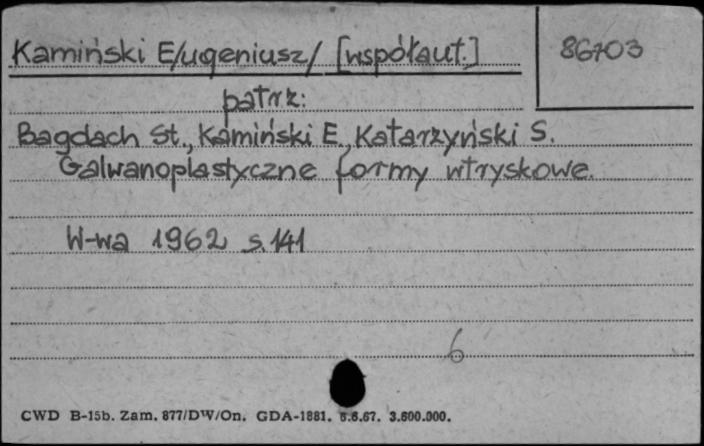 Kamiński E/ugeniusz/ [współaut.]
86703
patrz:
Bagdach St., Kamiński E., Katarzyński S.
Galwanoplastyczne formy wtryskowe.
W-wa 1962 s. 141
6
CWD B-15b. Zam. 877/DW/On. GDA-1881. 6.6.67. 3.600.000.